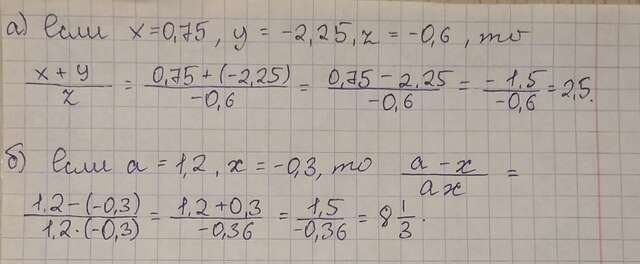 а) Если x=0,75, y = -2,25, z = -0,6, то
(x + y)/z = (0,75+(-2,25))/(-0,6) = (0,75 - 2,25)/(-0,6) = (-1,5)/(-0,6) = 2,5.
б) Если a = 1,2, x = -0,3, то (a - x)/(ax) =
(1,2-(-0,3))/(1,2·(-0,3)) = (1,2+0,3)/(-0,36) = (1,5)/(-0,36) = 8 1/3.